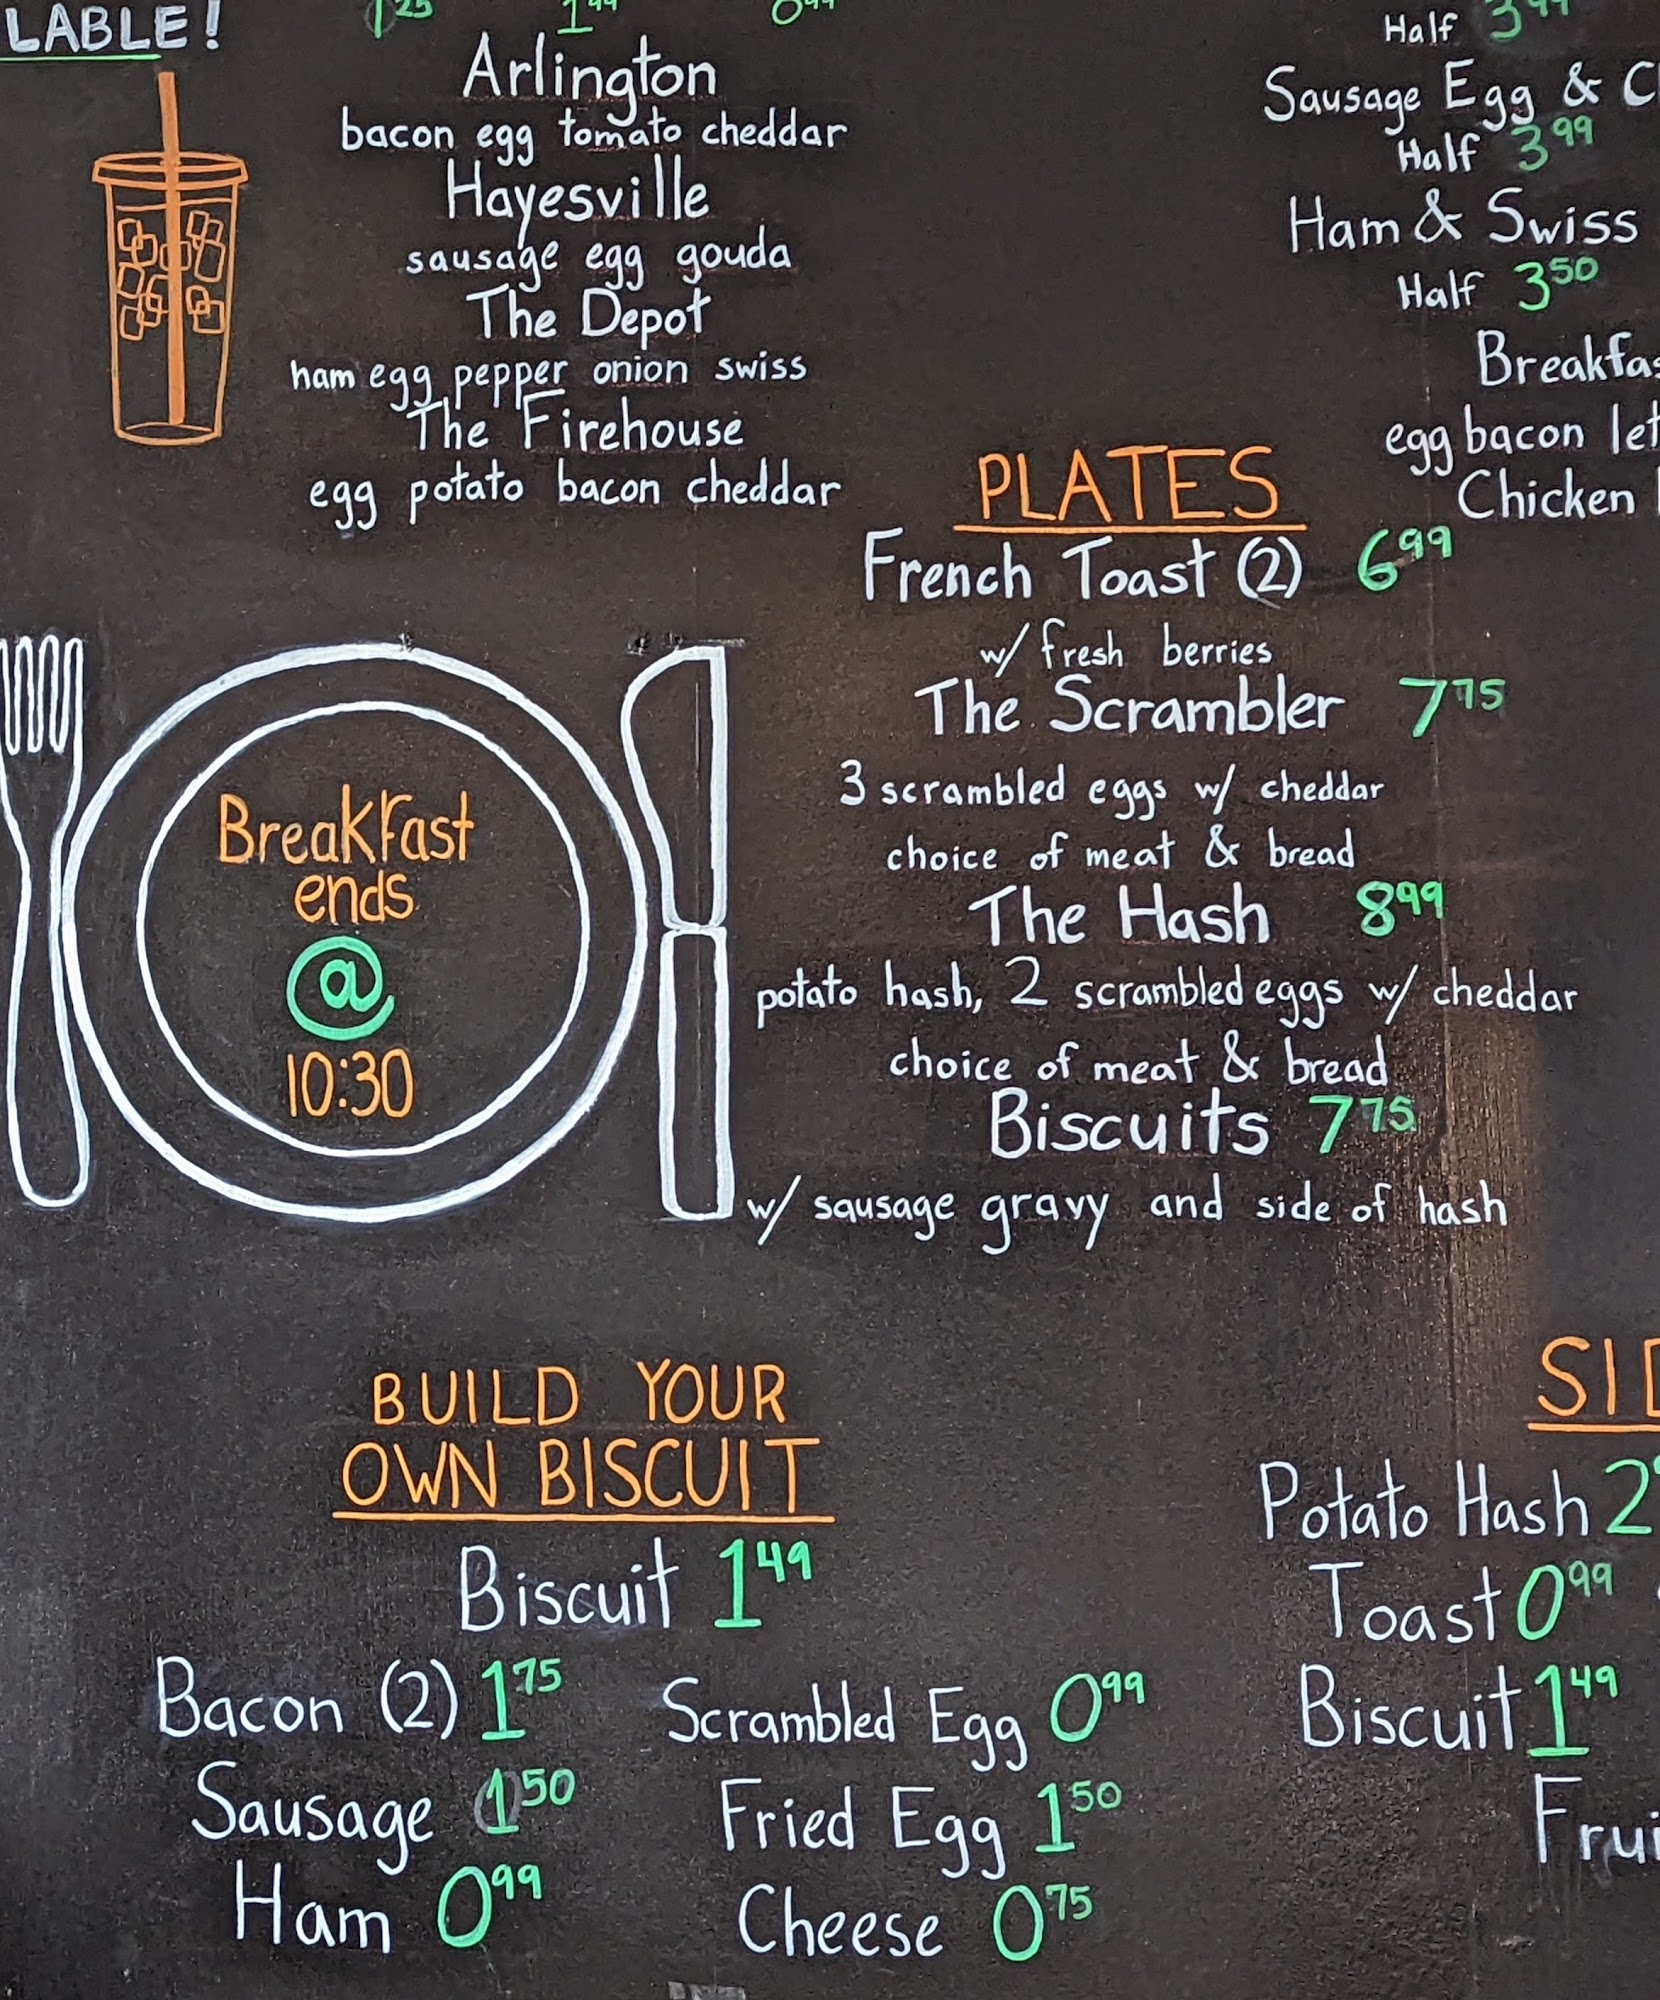 LABLE!
1.25 1.99 0.99
Arlington
bacon egg tomato cheddar
Hayesville
sausage egg gouda
The Depot
ham egg pepper onion swiss
The Firehouse
egg potato bacon cheddar
Half 3.99
Sausage Egg &
Half 3.99
Ham & Swiss
Half 3.50
egg bacon
Chicken
PLATES
French Toast (2) 6.99
w/ fresh berries
The Scrambler 7.75
3 scrambled eggs w/ cheddar
choice of meat & bread
The Hash 8.99
potato hash, 2 scrambled eggs w/ cheddar
choice of meat & bread
Biscuits 7.75
w/ sausage gravy and side of hash
Breakfast
ends
@
10:30
BUILD YOUR
OWN BISCUIT
Biscuit 1.49
Bacon (2) 1.75
Sausage 1.50
Ham 0.99
Scrambled Egg 0.99
Fried Egg 1.50
Cheese 0.75
Potato Hash 2
Toast 0.99
Biscuit 1.49